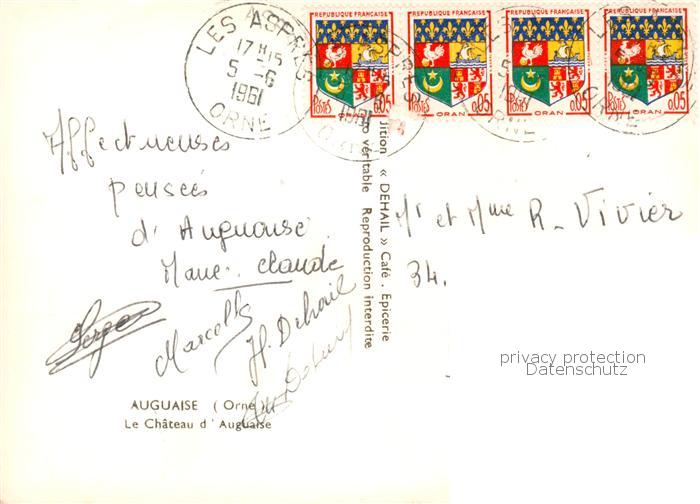 LES ASPRES
17H15
5-6
1961
ORNE
REPUBLIQUE FRANÇAISE
POSTES
0,05
ORAN
REPUBLIQUE FRANÇAISE
POSTES
0,05
ORAN
REPUBLIQUE FRANÇAISE
0,05
ORAN
REPUBLIQUE FRANÇAISE
POSTES
0,05
ORAN
Affectueuses
pensées
d'Auguaise
Claude
Serge
Marcelle
H. Dehail
AUGUAISE (Orne)
Le Château d'Auguaise
« DEHAIL » Café . Epicerie
véritable Reproduction interdite
Mr et Mme R. Vivier
34.
privacy protection
Datenschutz